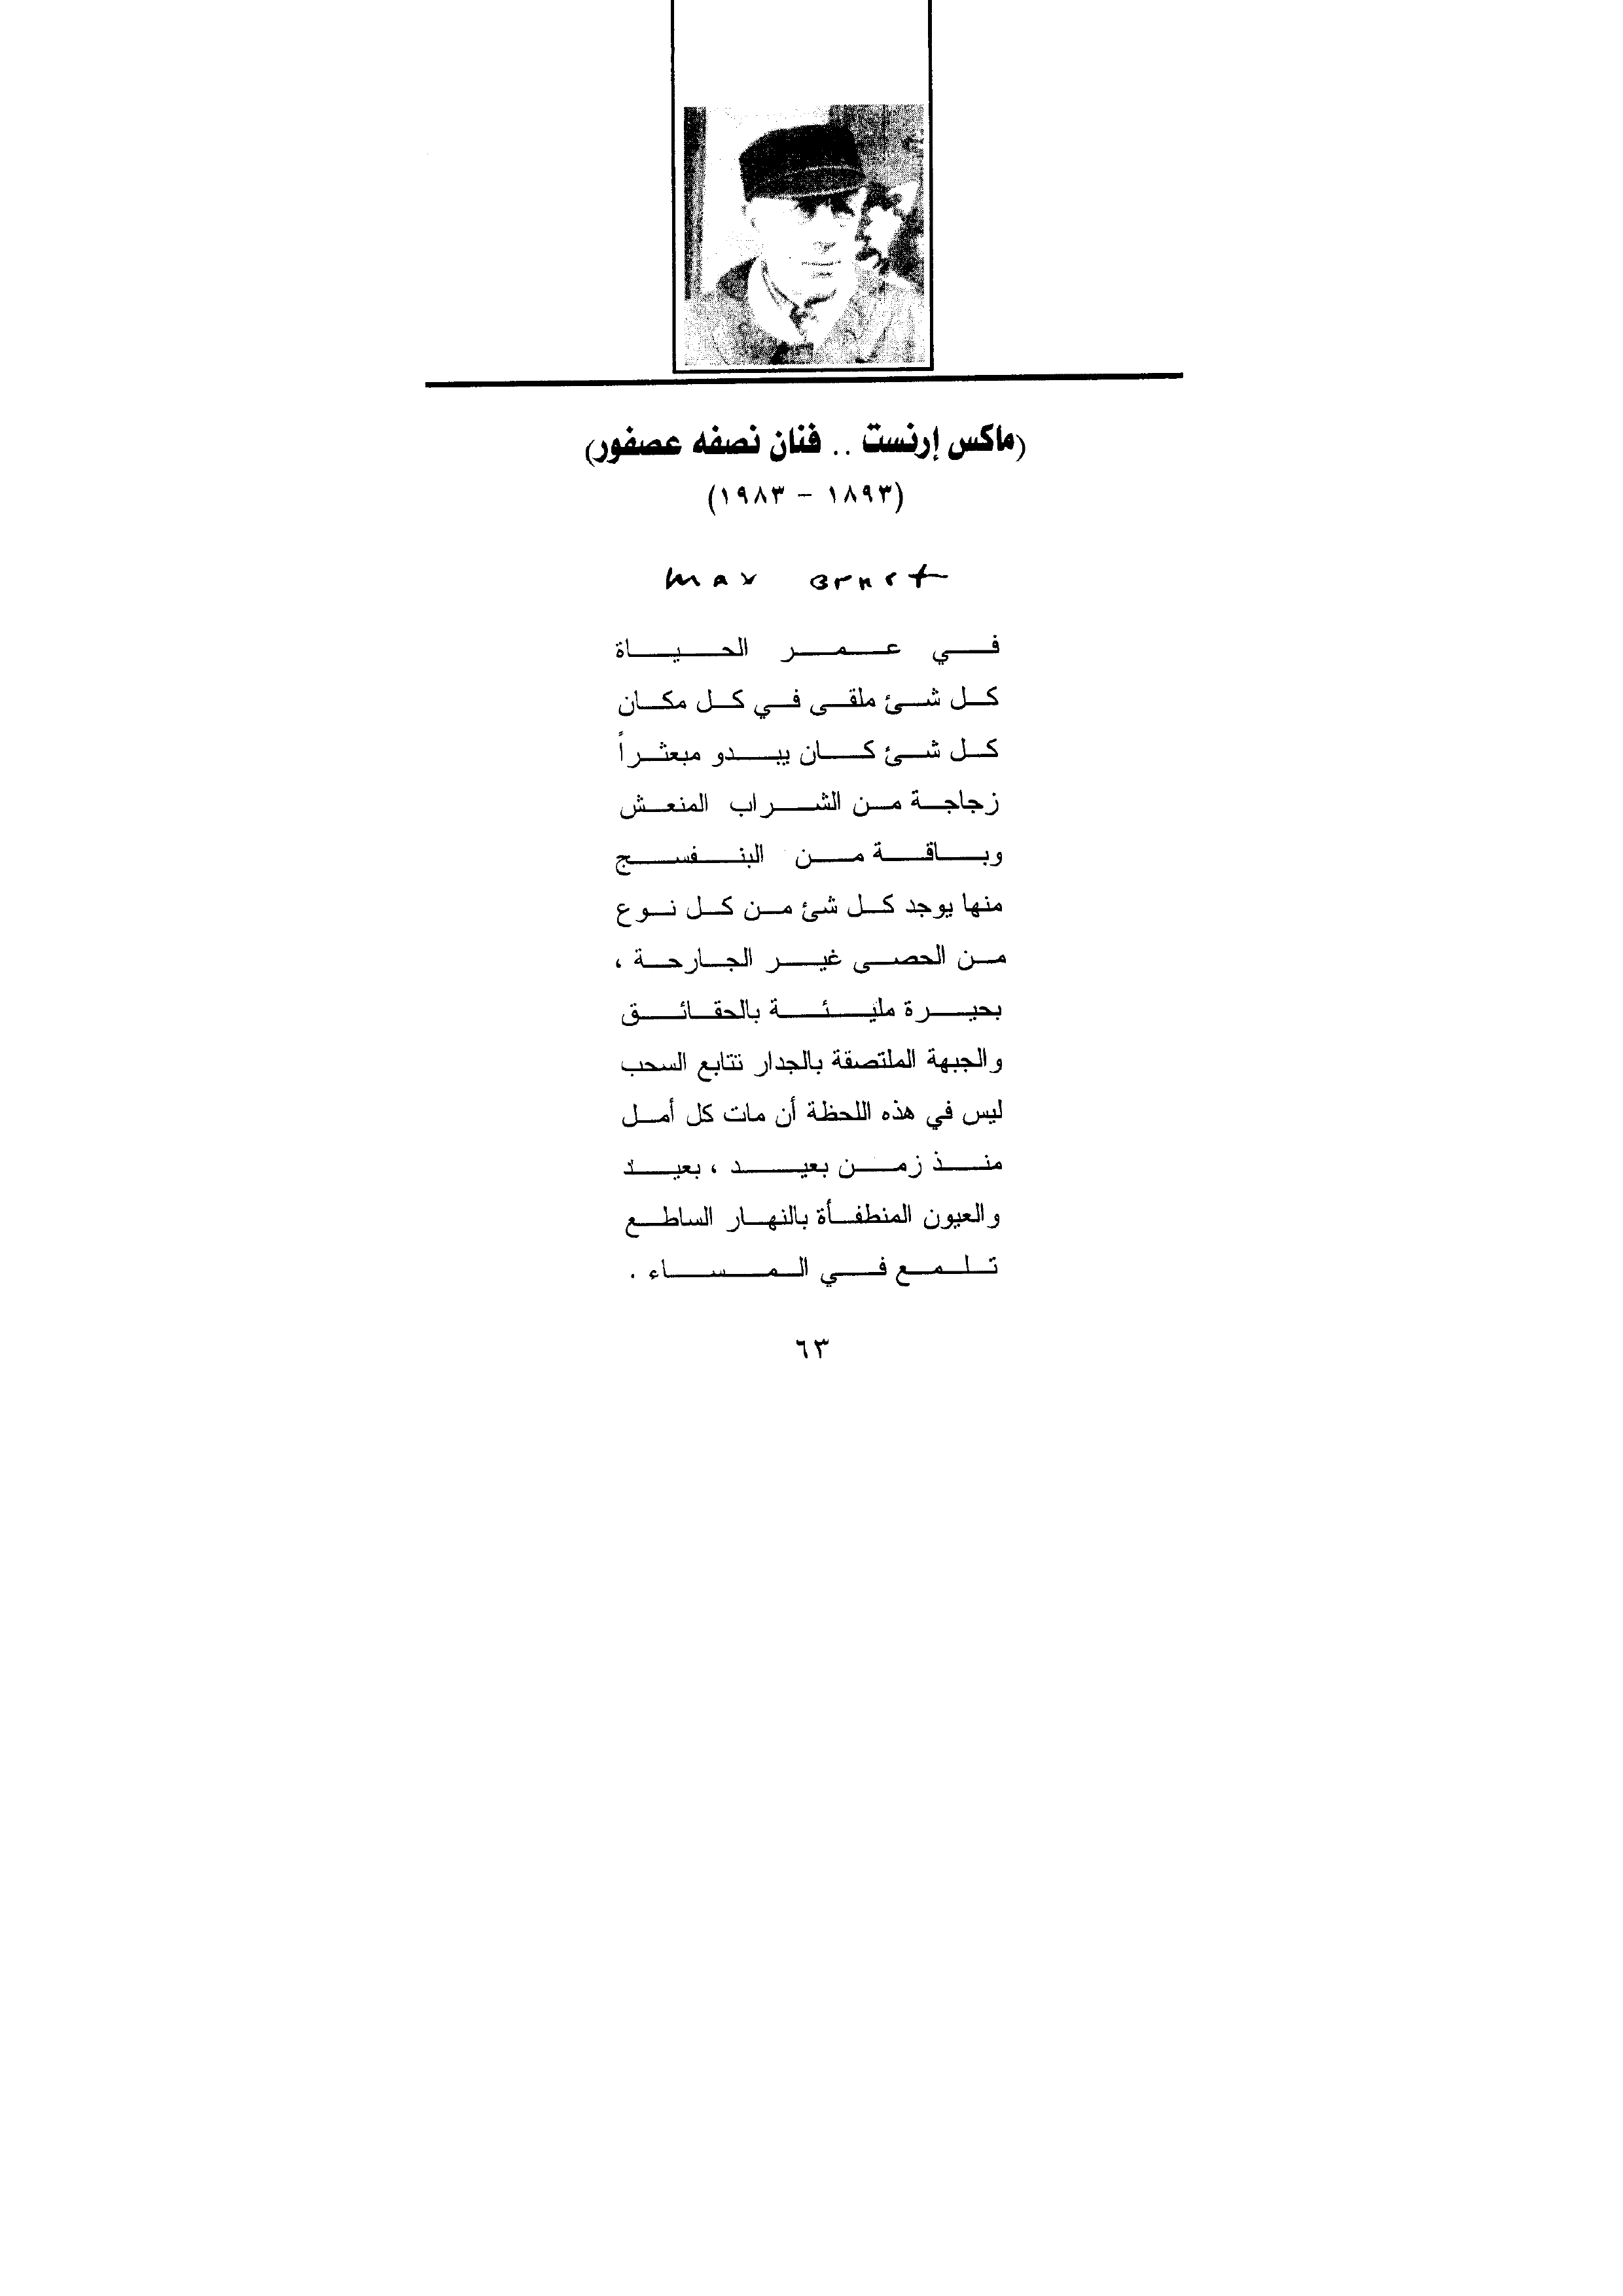 (ماكس إرنست .. فنان نصفه عصفور)
(١٨٩٣ – ١٩٨٣)
max ernst
في عمر الحياة
كل شئ ملقى في كل مكان
كل شئ كان يبدو مبعثراً
زجاجة من الشراب المنعش
وباقة من البنفسج
منها يوجد كل شئ من كل نوع
من الحصى غير الجارحة ،
بحيرة مليئة بالحقائق
والجبهة الملتصقة بالجدار تتابع السحب
ليس في هذه اللحظة أن مات كل أمل
منذ زمن بعيد ، بعيد
والعيون المنطفأة بالنهار الساطع
تلمع في المساء .
٦٣